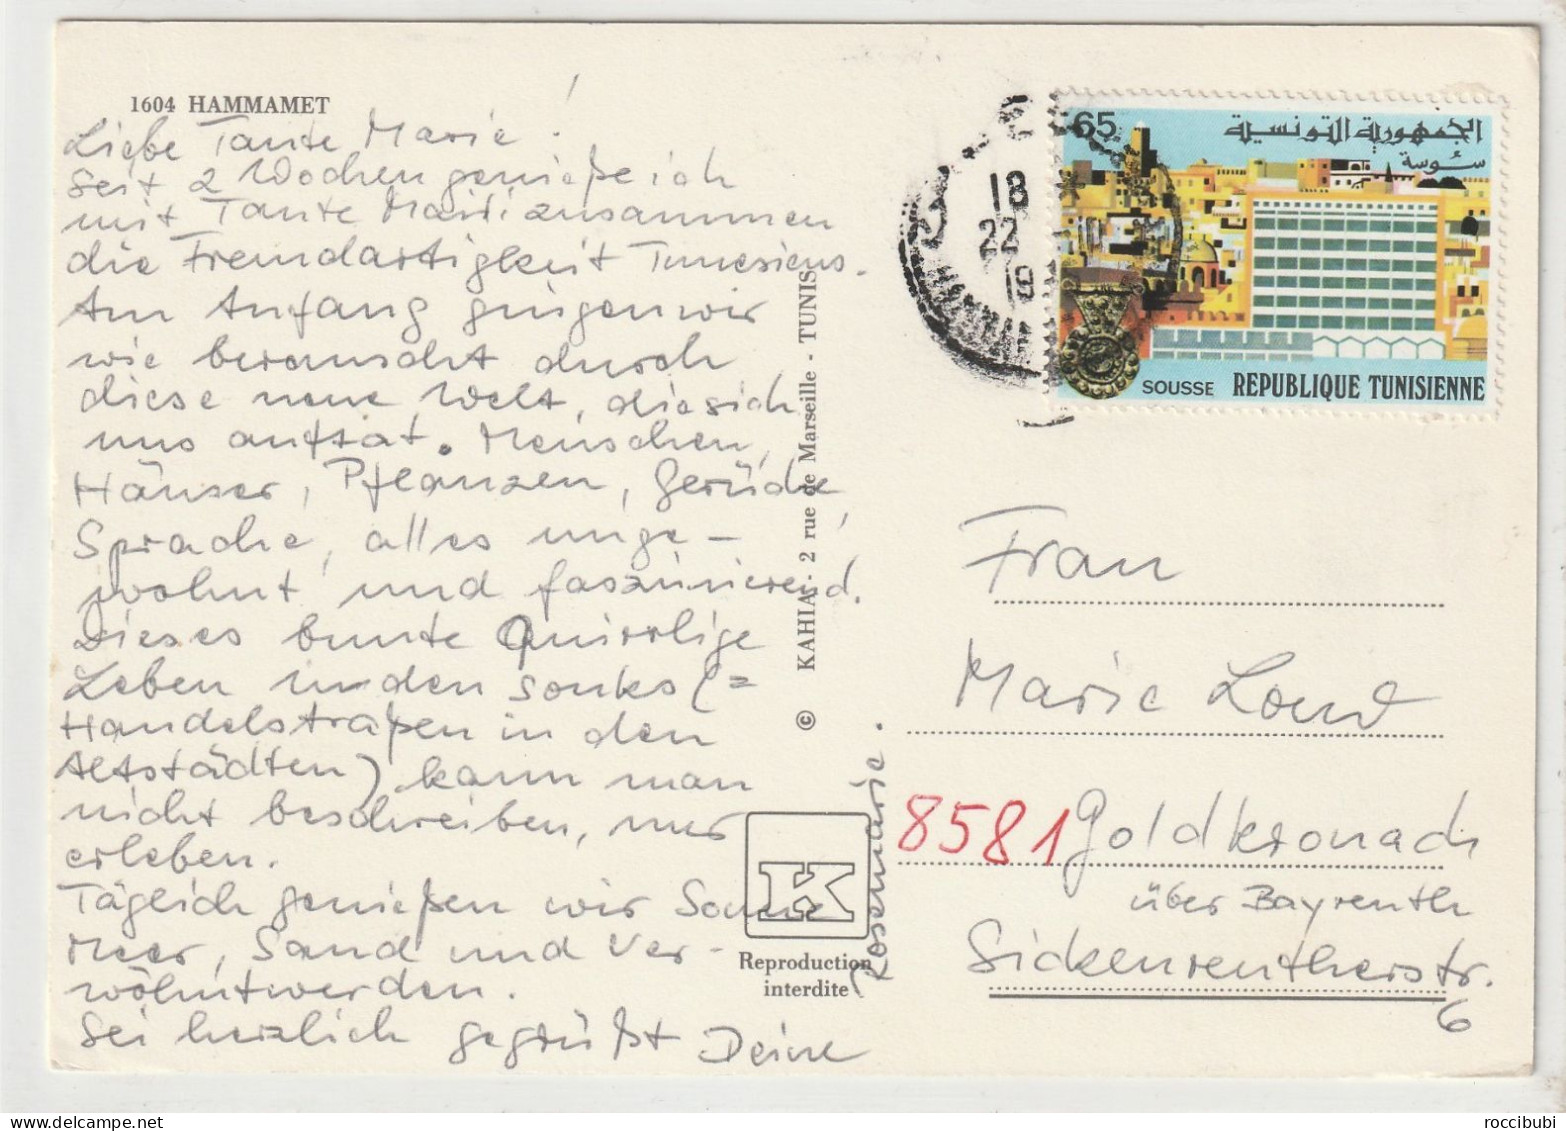 1604 HAMMAMET
Liebe Tante Marie!
Seit 2 Wochen genieße ich
mit Tante Mausi zusammen
die Fremdartigkeit Tunesiens.
Am Anfang gingen wir
wie berauscht durch
diese neue Welt, die sich
uns auftat. Menschen,
Häuser, Pflanzen, Gerüche,
Sprache, alles unge-
wohnt und faszinierend.
Dieses bunte Quirrlige
Leben in den Souks (=
Handelstraßen in den
Altstädten) kann man
nicht beschreiben, nur
erleben.
Täglich genießen wir Sonne
Meer, Sand und Ver-
wöhntwerden.
Sei herzlich gegrüßt Deine
Rosemarie.
© KAHIA - 2 rue de Marseille - TUNIS
K
Reproduction
interdite
18
22
19
65
الجمهورية التونسية
سوسة
SOUSSE REPUBLIQUE TUNISIENNE
Frau
Marie
8581 Goldkronach
über Bayreuth
Sickenreutherstr.
6
roccibubi